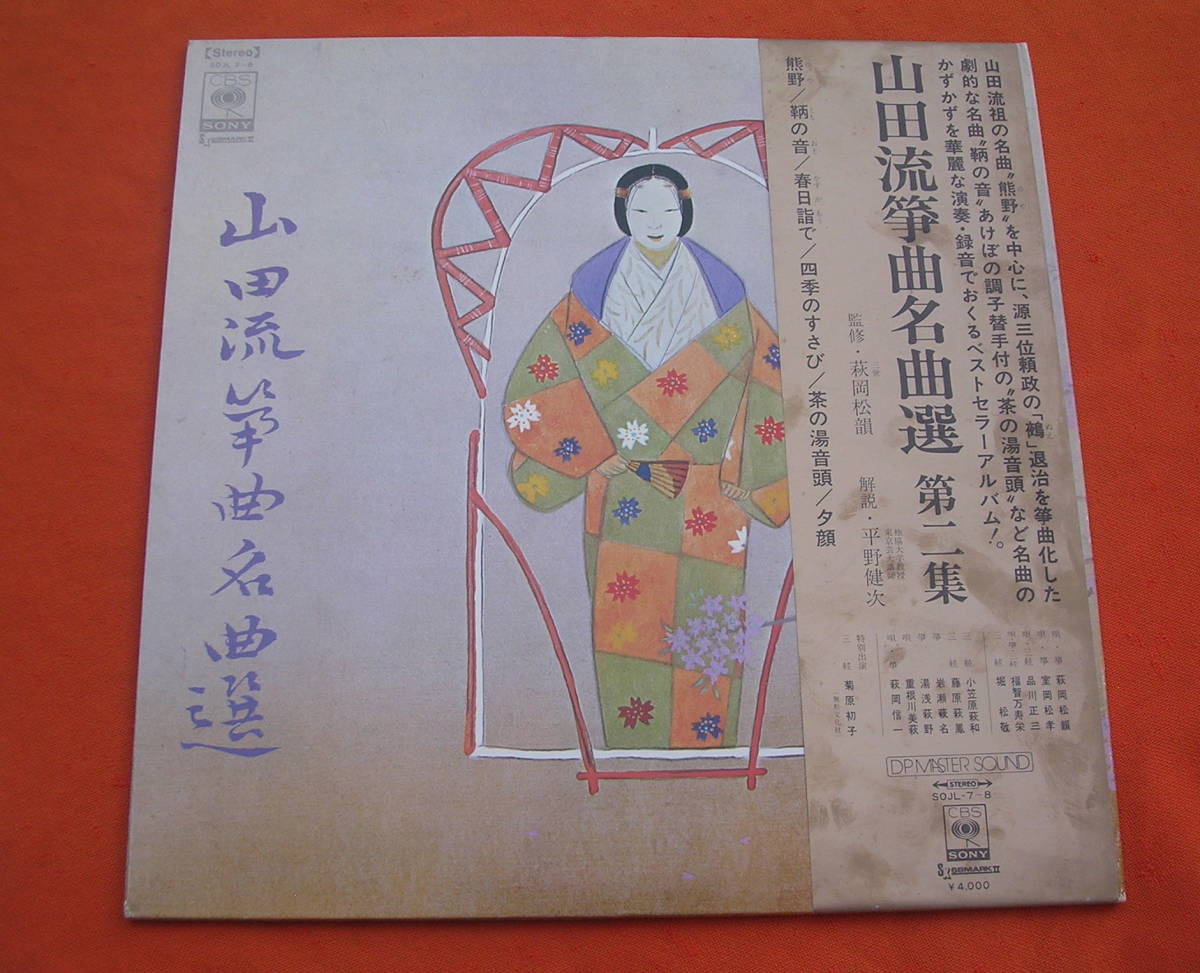 【Stereo】
SOJL 7-8
CBS
SONY
山田流箏曲名曲選
山田流祖の名曲〝熊野〟を中心に、源三位頼政の「鵺」退治を箏曲化した
劇的な名曲〝鞆の音〟あけぼの調子替手付の〝茶の湯音頭〟など名曲の
かずかずを華麗な演奏・録音でおくるベストセラーアルバム!。
山田流箏曲名曲選 第二集
監修・三世 萩岡松韻
解説・平野健次
東京芸大講師
熊野/鞆の音/春日詣で/四季のすさび/茶の湯音頭/夕顔
唄・箏 萩岡松韻
唄・箏 室岡松孝
唄・三絃 品川正三
唄・箏・三絃 福智万寿栄
三絃 堀 松敬
三絃 小笠原萩和
三絃 藤原萩鳳
箏 岩瀬萩名
箏 湯浅萩野
唄 重根川美萩
唄・箏 萩岡信一
特別出演
三絃 菊原初子
DP MASTER SOUND
STEREO
SOJL-7-8
CBS
SONY
¥4,000